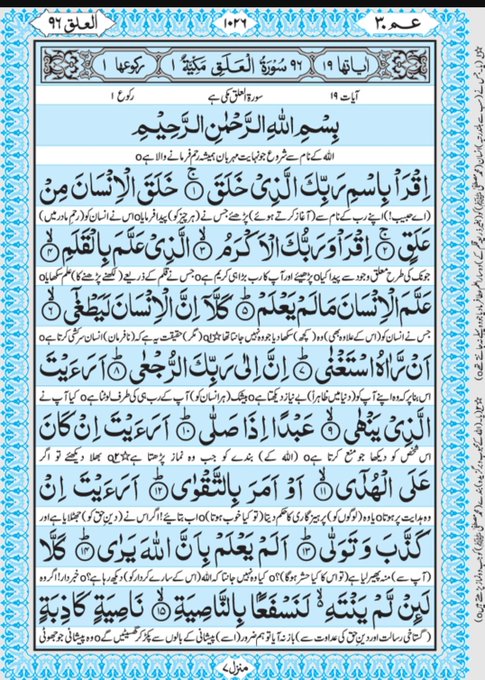 العلق ٩٦
١٠٢٦
عـم ٣٠
اٰیاتھا ١٩
٩٦ سُوْرَةُ الْعَـلَقِ مَكِّيَّةٌ ١
رکوعھا ١
آیات ١٩
سورۃ العلق مکی ہے
رکوع ١
بِسْمِ اللّٰهِ الرَّحْمٰنِ الرَّحِيْمِ
اللہ کے نام سے شروع جو نہایت مہربان ہمیشہ رحم فرمانے والا ہے o
اِقْرَاْ بِاسْمِ رَبِّكَ الَّذِيْ خَلَقَ ۚ ١ خَلَقَ الْاِنْسَانَ مِنْ
(اے حبیب!) اپنے رب کے نام سے (آغاز کرتے ہوئے) پڑھئے جس نے (ہر چیز کو) پیدا فرمایا o اس نے انسان کو (رحمِ مادر میں)
عَلَقٍ ۚ ٢ اِقْرَاْ وَ رَبُّكَ الْاَكْرَمُ ۙ ٣ الَّذِيْ عَلَّمَ بِالْقَلَمِ ۙ ٤
جونک کی طرح معلق وجود سے پیدا کیا o پڑھیئے اور آپ کا رب بڑا ہی کریم ہے o جس نے قلم کے ذریعے (لکھنے پڑھنے کا) علم سکھایا o
عَلَّمَ الْاِنْسَانَ مَا لَمْ يَعْلَمْ ؕ ٥ كَلَّاۤ اِنَّ الْاِنْسَانَ لَيَطْغٰۤى ۙ ٦
جس نے انسان کو (اس کے علاوہ بھی) وہ (کچھ) سکھا دیا جو وہ نہیں جانتا تھا o (مگر) حقیقت یہ ہے کہ (نافرمان) انسان سرکشی کرتا ہے o
اَنْ رَّاٰهُ اسْتَغْنٰى ؕ ٧ اِنَّ اِلٰى رَبِّكَ الرُّجْعٰى ؕ ٨ اَرَءَيْتَ
اس بنا پر کہ وہ اپنے آپ کو (دنیا میں ظاہراً) بے نیاز دیکھتا ہے o بیشک (ہر انسان کو) آپ کے رب ہی کی طرف لوٹنا ہے o کیا آپ نے
الَّذِيْ يَنْهٰى ۙ ٩ عَبْدًا اِذَا صَلّٰى ؕ ١٠ اَرَءَيْتَ اِنْ كَانَ
اس شخص کو دیکھا جو منع کرتا ہے o (اللہ کے) بندے کو جب وہ نماز پڑھتا ہے o بھلا دیکھئے تو اگر
عَلَى الْهُدٰۤى ۙ ١١ اَوْ اَمَرَ بِالتَّقْوٰى ؕ ١٢ اَرَءَيْتَ اِنْ
وہ ہدایت پر ہوتا o یا وہ (لوگوں کو) پرہیزگاری کا حکم دیتا (تو کیا خوب ہوتا) o اب بتائیے! اگر اس نے (دینِ حق کو) جھٹلایا ہے اور
كَذَّبَ وَ تَوَلّٰى ؕ ١٣ اَلَمْ يَعْلَمْ بِاَنَّ اللّٰهَ يَرٰى ؕ ١٤ كَلَّا
(آپ سے) منہ پھیر لیا ہے (تو اس کا کیا حشر ہوگا)؟ o کیا وہ نہیں جانتا کہ اللہ (اس کے سارے کردار کو) دیکھ رہا ہے؟ o خبردار! اگر وہ
لَئِنْ لَّمْ يَنْتَهِ ۙ لَنَسْفَعًۢا بِالنَّاصِيَةِ ۙ ١٥ نَاصِيَةٍ كَاذِبَةٍ
(گستاخیٔ رسالت اور دینِ حق کی عداوت سے) باز نہ آیا تو ہم ضرور (اسے) پیشانی کے بالوں سے پکڑ کر گھسیٹیں گے o وہ پیشانی جو جھوٹی
منزل ٧